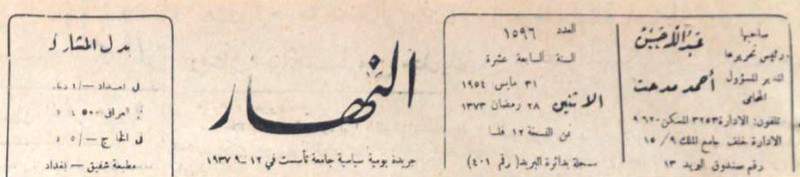 صاحبها
عبدالله حسن
ورئيس تحريرها
المدير المسؤول
المحامي
أحمد مدحت
تلفون: الادارة ٣٢٥٣ المسكن ٩٦٢٠
الادارة خلف جامع الملك ٩ / ١٥
رقم صندوق البريد ١٣
العدد ١٥٩٦
السنة السابعة عشرة
٣١ مايس ١٩٥٤
الاثنين
٢٨ رمضان ١٣٧٣
ثمن النسخة ١٢ فلسا
مسجلة بدائرة البريد (رقم ٤٠١)
النهار
جريدة يومية سياسية جامعة تأسست في ١٢ - ٩ ١٩٣٧
بدل المشاركة
في بغداد
في العراق
في الخارج
مطبعة شفيق - بغداد